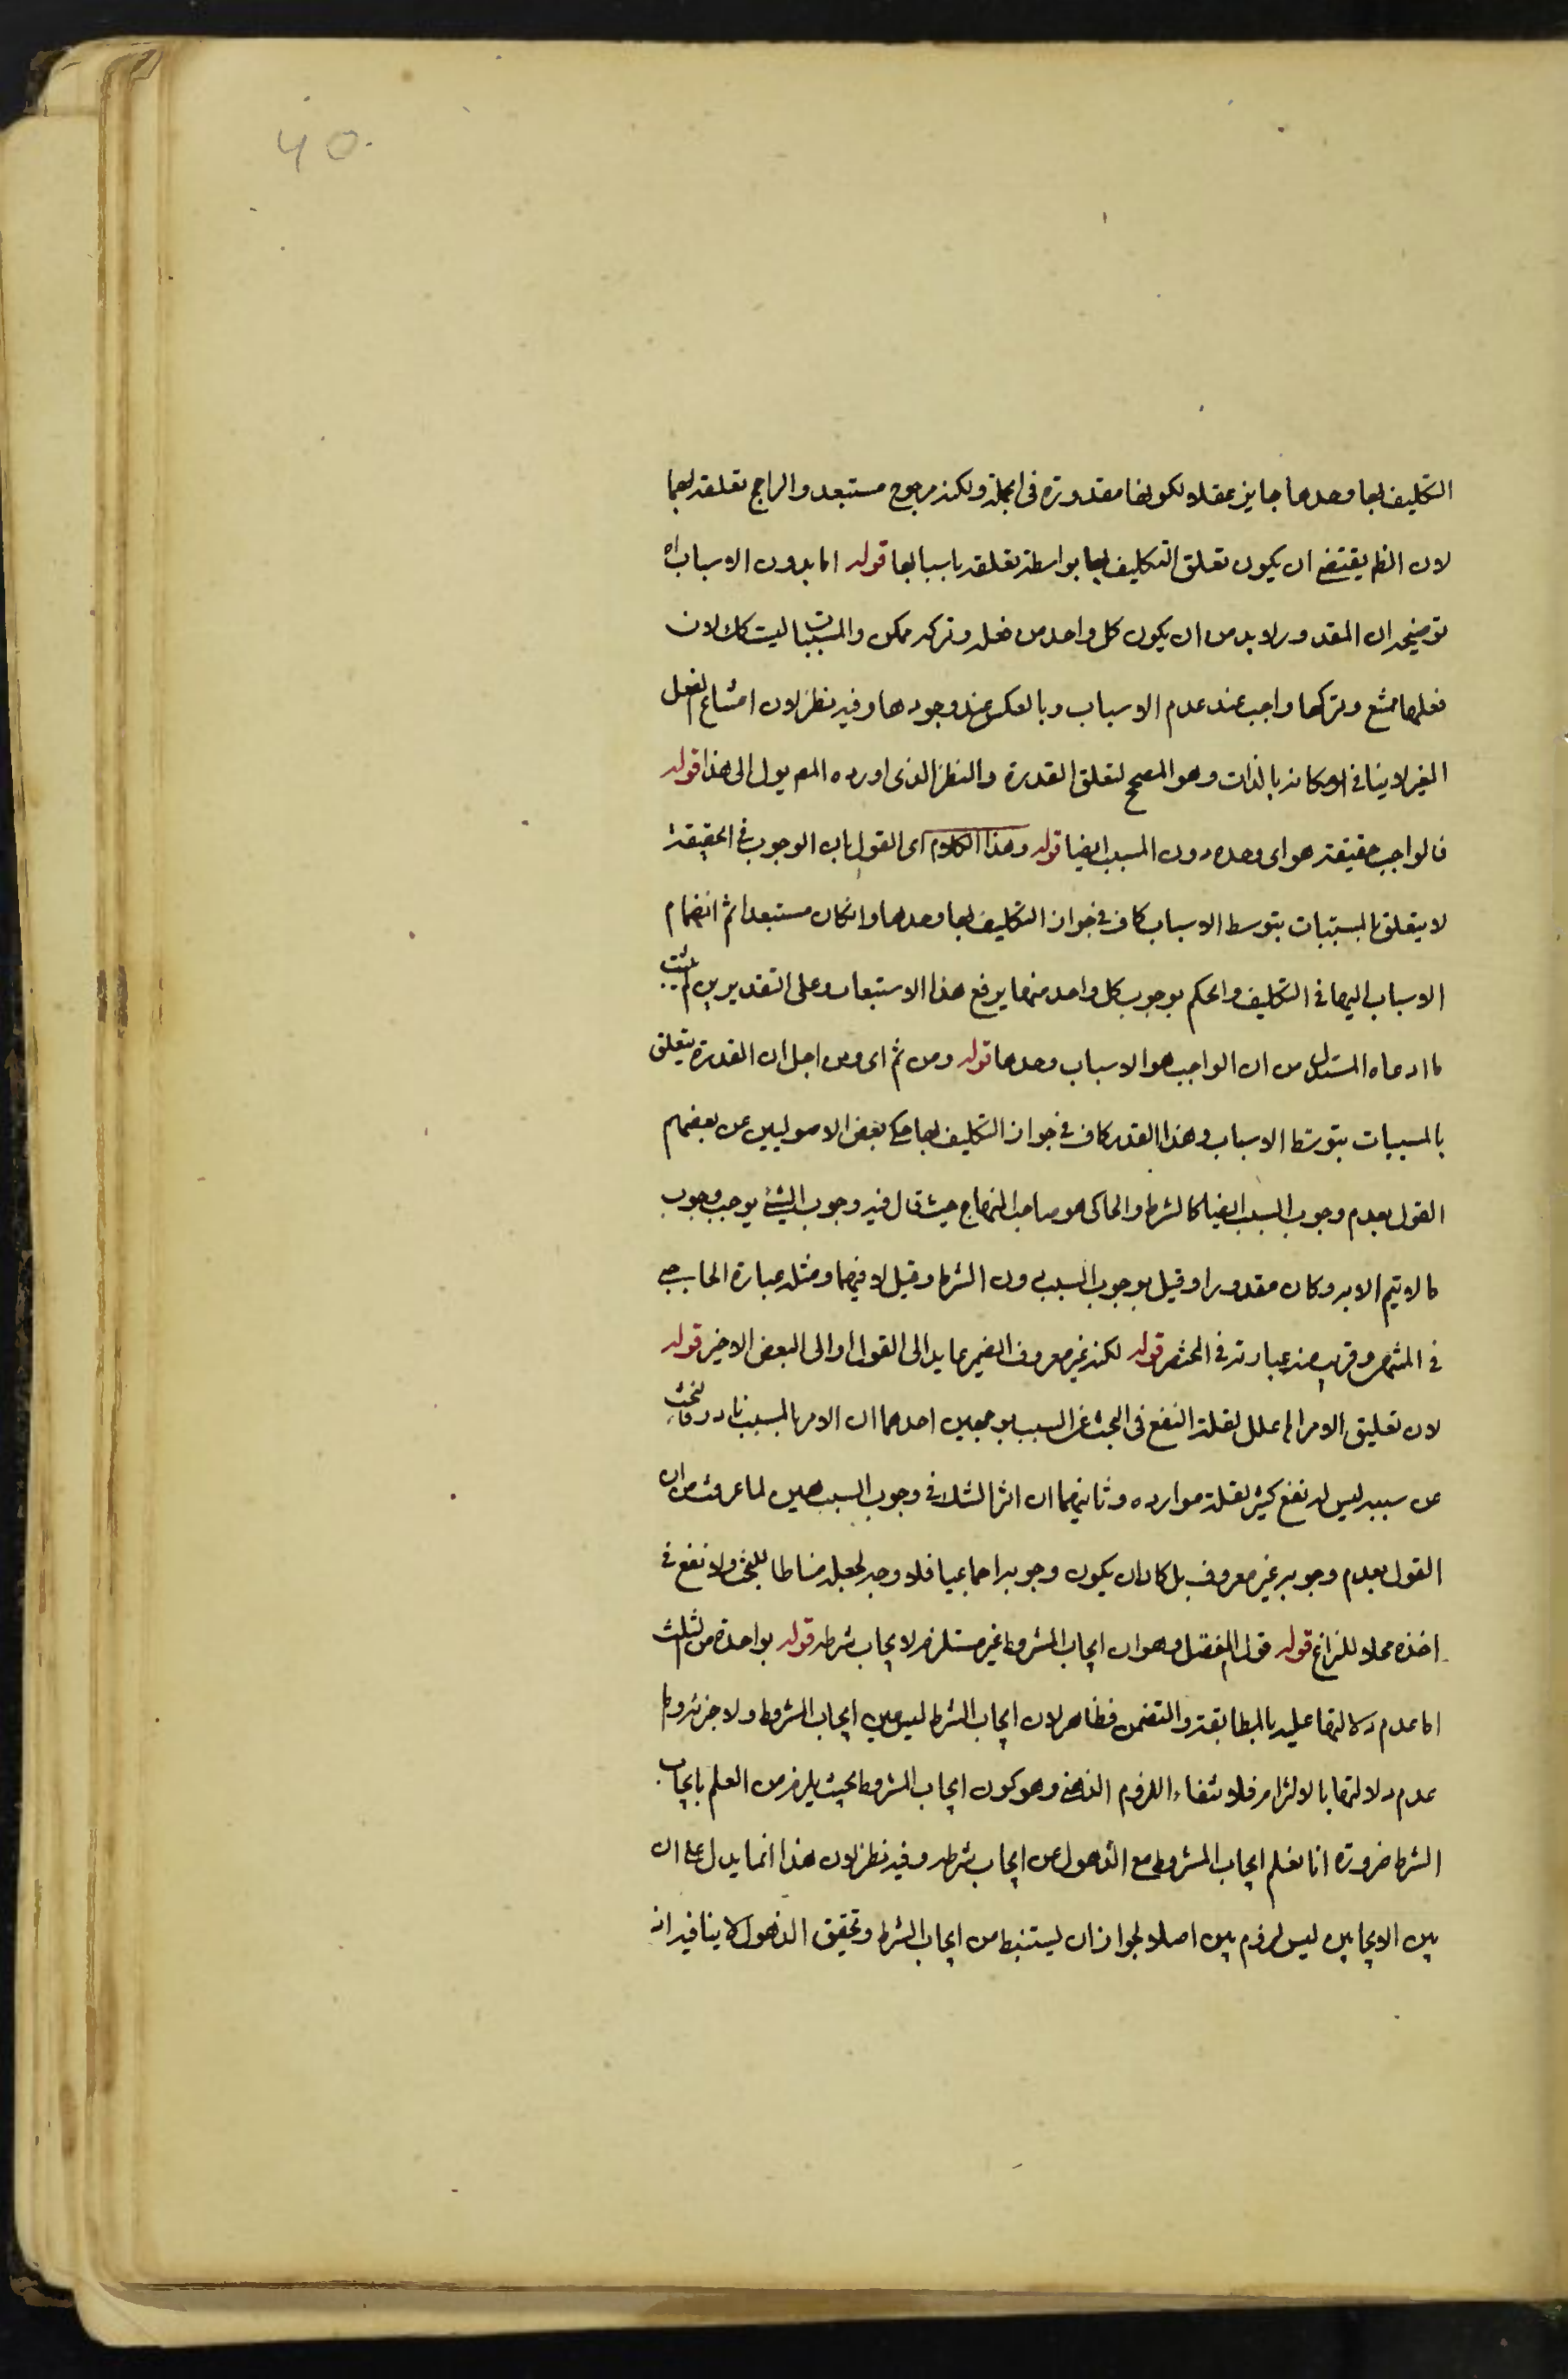 40.
التكليف بها وحدها جايز عقلا لكونها مقدورة فى الجملة ولكنه مرجوح مستبعد والراجح تعلقه بهما
لان الظ يقتضى ان يكون تعلق التكليف بها بواسطة تعلقه باسبابها قوله اما بدون الاسباب اه
توضيحه ان المقدور لا بد من ان يكون كل واحد من فعله وتركه ممكن والمسببات ليست كك لان
فعلها ممتنع وتركها واجب عند عدم الاسباب وبالعكس عند وجودها وفيه نظر لان امتناع الفعل
الغير لا ينافى امكانه بالذات وهو المصحح لتعلق القدرة والنظر الذى اورده المص يول الى هذا قوله
فالواجب حقيقة هو اى وحده دون المسبب ايضا قوله وهذا الكلام اى القول بان الوجوب فى الحقيقة
لا يتعلق بالمسببات بتوسط الاسباب كاف فى جواز التكليف بها وحدها وانكان مستبعدا ثم انضمام
الاسباب اليها فى التكليف والحكم بوجوب كل واحد منهما يرفع هذا الاستبعاد وعلى التقديرين لم يثبت
ما ادعاه المستدل من ان الواجب هو الاسباب وحدها قوله ومن ثم اى ومن اجل ان القدرة يتعلق
بالمسببات بتوسط الاسباب وهذا القدر كاف فى جواز التكليف بها حكى بعض الاصوليين عن بعضهم
القول بعدم وجوب السبب ايضا كالشرط والحاكى هو صاحب المنهاج حيث قال فيه وجوب الشئ يوجب وجوب
ما لا يتم الا به وكان مقدورا وقيل بوجوب السبب دون الشرط وقيل لا فيهما ومثله عبارة الحاجبى
فى المنتهى وقريب منه عبارته فى المختصر قوله لكنه غير معروف الضمير عايد الى القول او الى البعض الاخير قوله
لان تعليق الامر اه علل لقلة النفع فى البحث عن السبب بوجهين احدهما ان الامر بالمسبب نادر فالبحث
عن سببه ليس له نفع كثير لقلة موارده وثانيهما ان اثر الشك فى وجوب السبب هين لما عرفت من ان
القول بعدم وجوبه غير معروف بل كاد ان يكون وجوبه اجماعيا فلا وجه لجعله مناطا للبحث ولا نفع فى
اخذه محلا للنزاع قوله قول المفصل وهو ان ايجاب المشروط غير مستلزم لايجاب شرطه قوله بواحدة من الثلث
اما عدم دلالتها عليه بالمطابقة والتضمن فظاهر لان ايجاب الشرط ليس عين ايجاب المشروط ولا جزئه واما
عدم دلالتها بالالتزام فلانتفاء اللزوم الذهنى وهو كون ايجاب المشروط بحيث يلزم من العلم به العلم بايجاب
الشرط ضرورة انا نعلم ايجاب المشروط مع الذهول عن ايجاب شرطه وفيه نظر لان هذا انما يدل على ان
بين الايجابين ليس لزوم بين اصلا لجواز ان يستنبط من ايجاب الشرط وتحقيق الذهول لا ينافيه انه